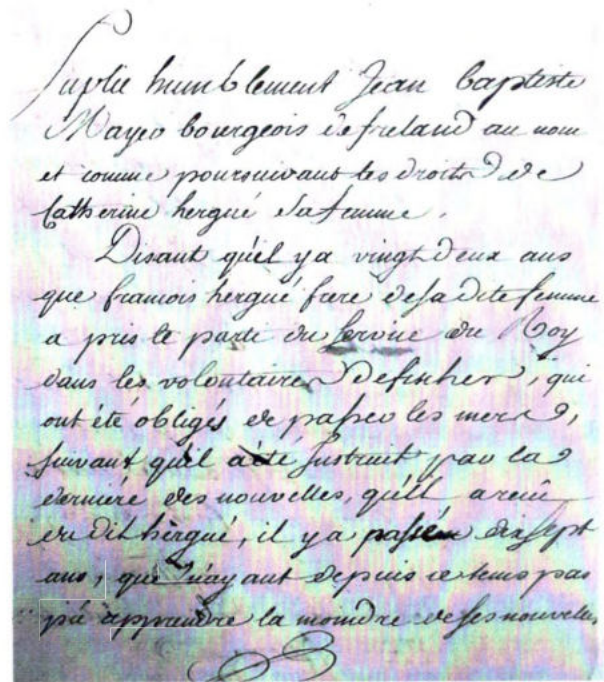 Suplie humblement Jean baptiste
Mayer bourgeois de freland au nom
et comme poursuivant les droits de
Catherine hergué sa femme.
Disant qu'il y a vingt deux ans
que francois hergué frere de sa dite femme
a pris le parti du service du Roy
dans les volontaires de fischer, qui
ont été obligés de passer les mers,
suivant qu'il a été instruit par la
derniere des nouvelles, qu'il a reçu
du dit hergué, il y a passé dixsept
ans, que n'ayant depuis ce tems pas
pû apprendre la moindre de ses nouvelles,